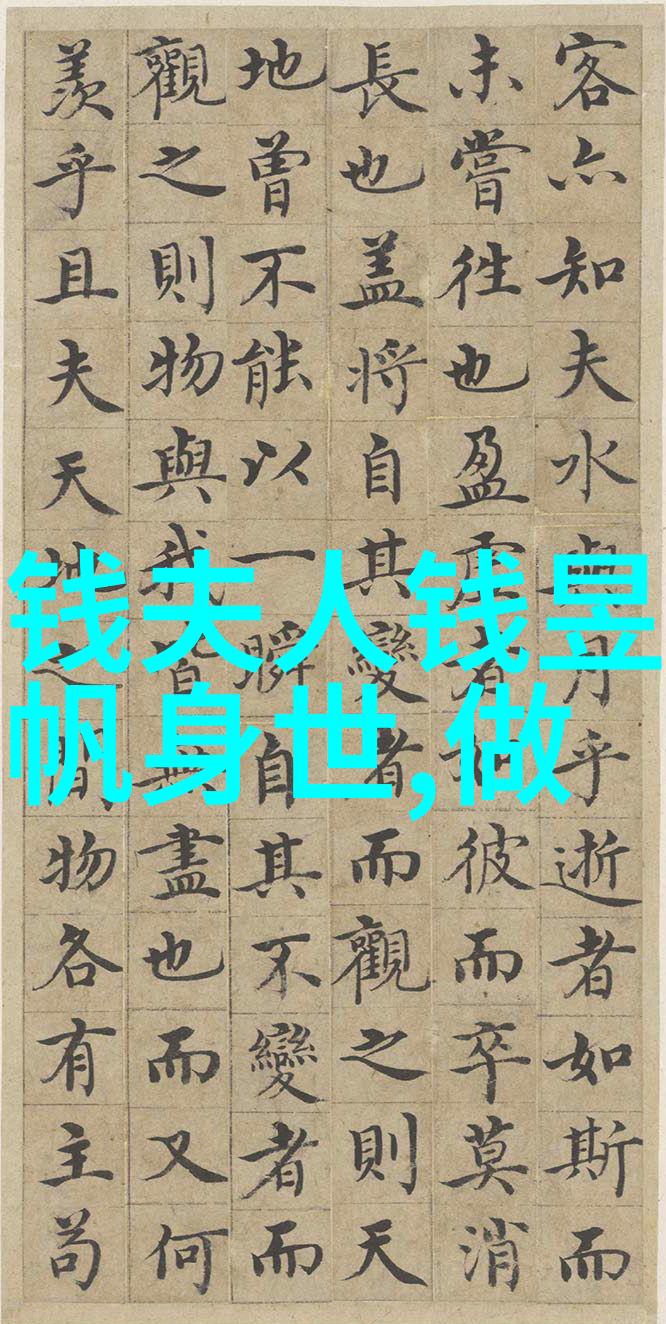 客亦知夫水與月乎逝者如斯而
未嘗往也盈虛者如彼而卒莫消
長也盖將自其變者而觀之則天
地曾不能以一瞬自其不變者而
觀之則物與我皆無盡也而又何
羨乎且夫天地之間物各有主苟
钱夫人钱昱
帆身世,做